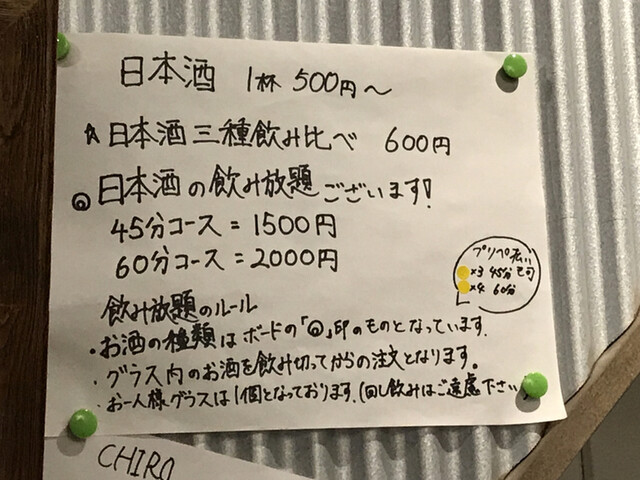 日本酒 1杯 500円～
☆日本酒三種飲み比べ 600円
◎日本酒の飲み放題ございます!
45分コース=1500円
60分コース=2000円
プリペ払い
×3 45分 も可
×4 60分
飲み放題のルール
・お酒の種類はボードの「◎」印のものとなっています.
・グラス内のお酒を飲み切ってからの注文となります。
・お一人様グラスは1個となっております.(回し飲みはご遠慮下さい
CHIRO